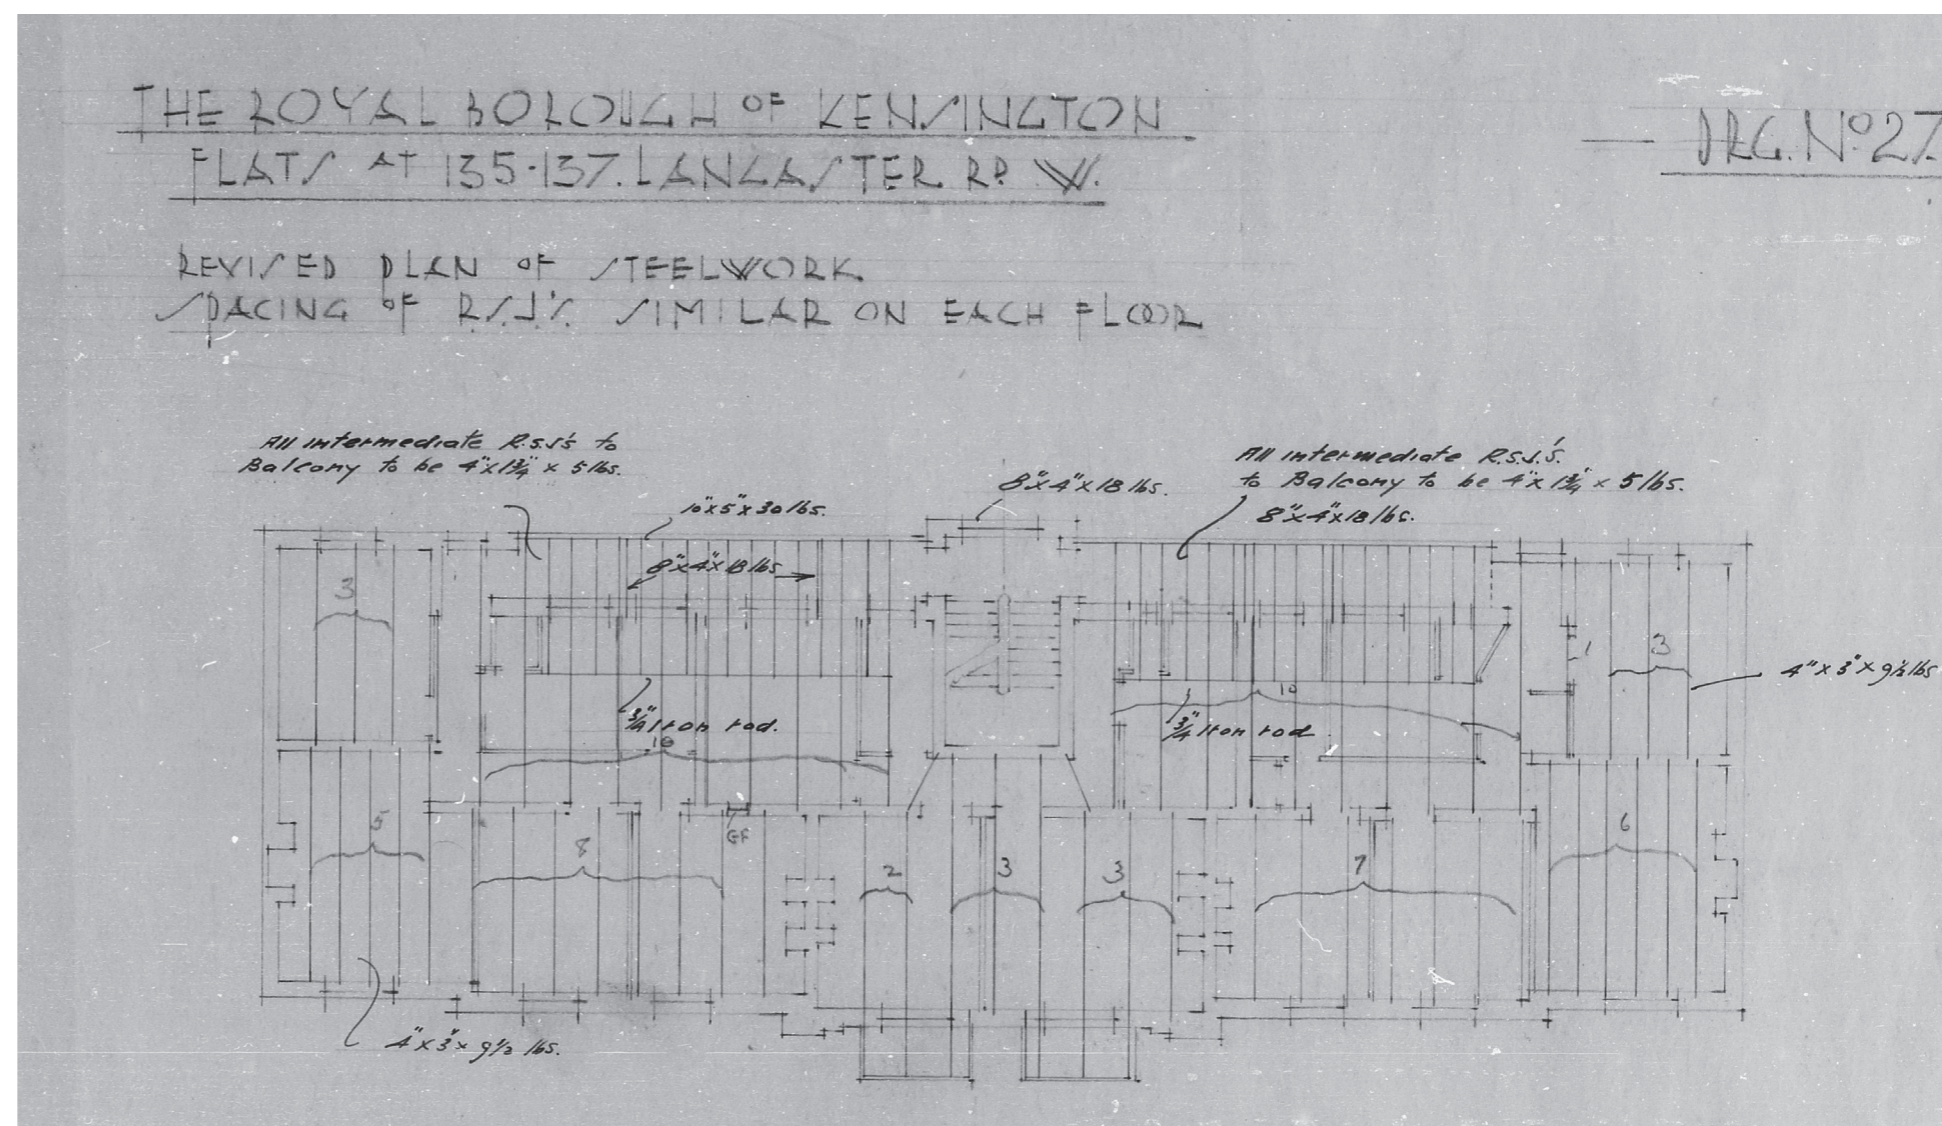 THE ROYAL BOROUGH OF KENSINGTON
FLATS AT 135-137. LANCASTER RD. W.
DRG. No 27.
REVISED PLAN OF STEELWORK
SPACING OF R.S.J'S. SIMILAR ON EACH FLOOR
All intermediate R.S.J's to
Balcony to be 4" x 1¾" x 5 lbs.
10" x 5" x 30 lbs.
8" x 4" x 18 lbs.
All intermediate R.S.J.'s.
to Balcony to be 4" x 1¾" x 5 lbs.
8" x 4" x 18 lbs.
8" x 4" x 18 lbs
3
1
3
4" x 3" x 9½ lbs
¾" Iron rod.
10
10
¾" Iron rod.
5
8
GF
2
3
3
7
6
4" x 3" x 9½ lbs.